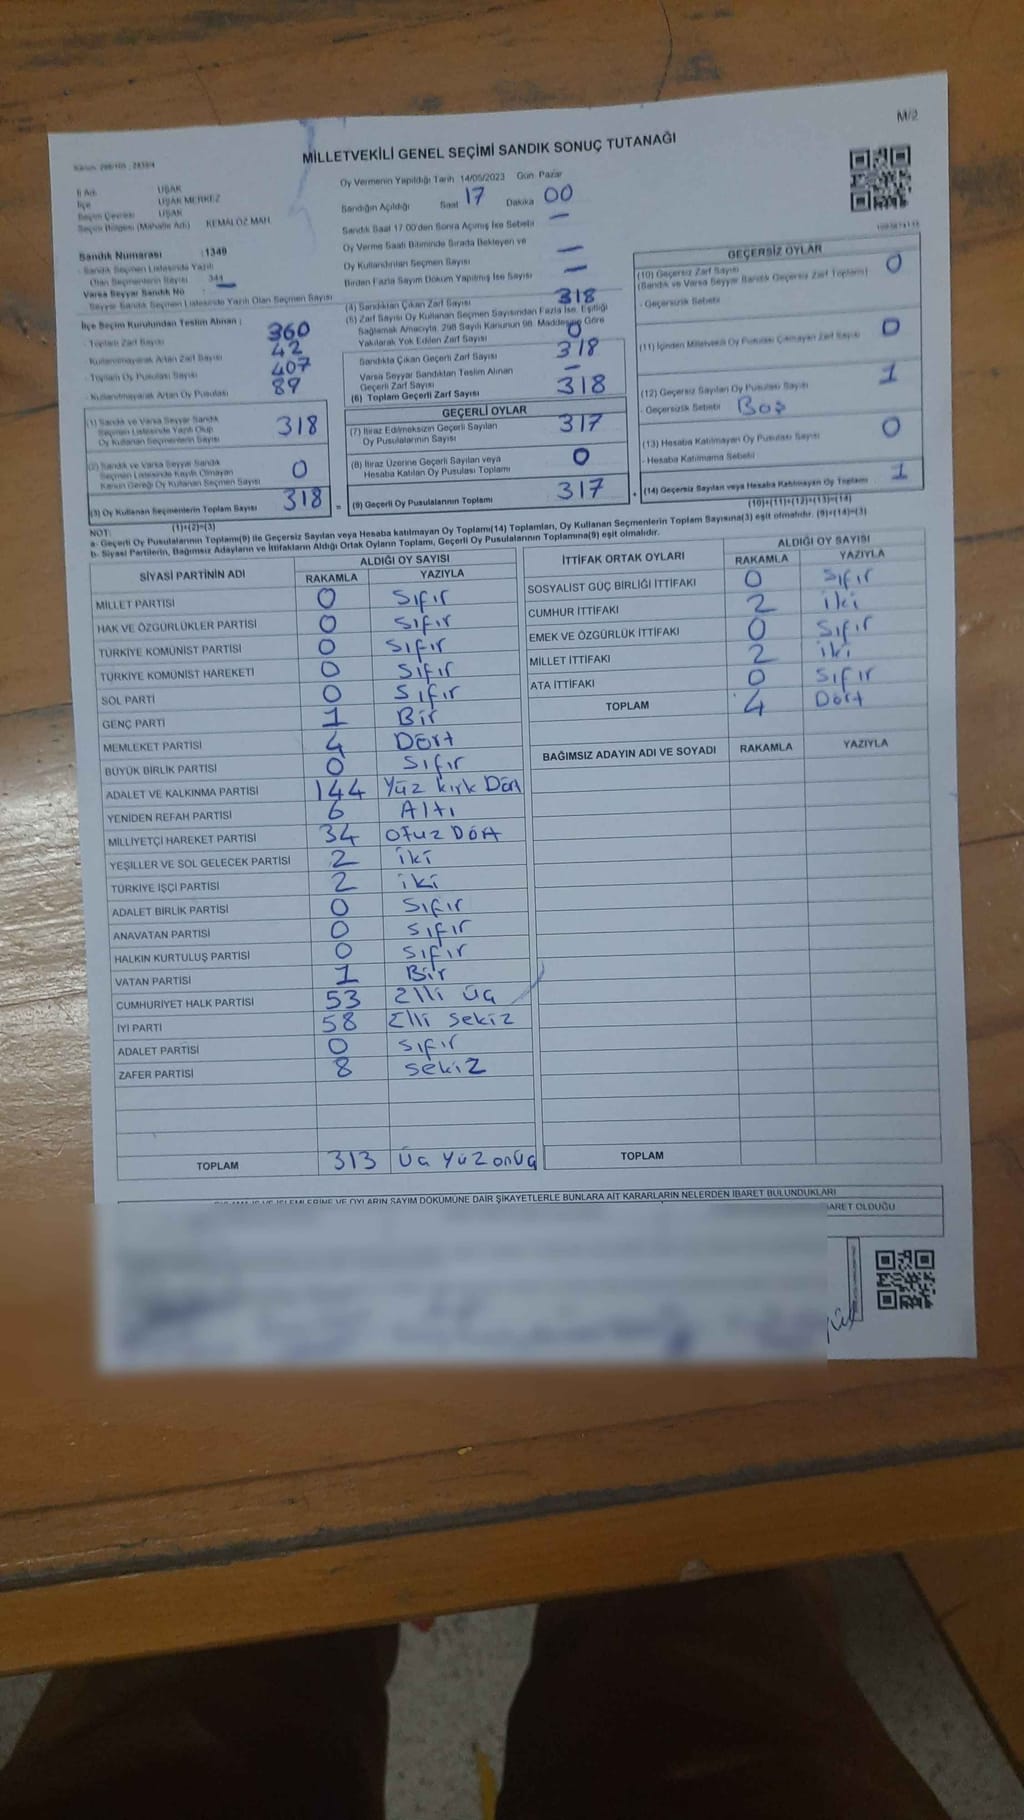 M/2
MİLLETVEKİLİ GENEL SEÇİMİ SANDIK SONUÇ TUTANAĞI
İl Adı UŞAK
İlçe UŞAK MERKEZ
Seçim Çevresi UŞAK
Seçim Bölgesi (Mahalle Adı) KEMALÖZ MAH
Sandık Numarası : 1349
- Sandık Seçmen Listesinde Yazılı
Olan Seçmenlerin Sayısı 344
Varsa Seyyar Sandık No : —
- Seyyar Sandık Seçmen Listesinde Yazılı Olan Seçmen Sayısı
İlçe Seçim Kurulundan Teslim Alınan :
- Toplam Zarf Sayısı 360
Kullanılmayarak Artan Zarf Sayısı 42
- Toplam Oy Pusulası Sayısı 407
- Kullanılmayarak Artan Oy Pusulası 89
(1) Sandık ve Varsa Seyyar Sandık
Seçmen Listesinde Yazılı Olup
Oy Kullanan Seçmenlerin Sayısı 318
(2) Sandık ve Varsa Seyyar Sandık
Seçmen Listesinde Kayıtlı Olmayan
Kanun Gereği Oy Kullanan Seçmen Sayısı 0
(3) Oy Kullanan Seçmenlerin Toplam Sayısı 318
(1)+(2)=(3)
Oy Vermenin Yapıldığı Tarih 14/05/2023 Gün Pazar
Sandığın Açıldığı Saat 17 Dakika 00
Sandık Saat 17 00'den Sonra Açılmış İse Sebebi —
Oy Verme Saati Bitiminde Sırada Bekleyen ve
Oy Kullandırılan Seçmen Sayısı —
Birden Fazla Sayım Döküm Yapılmış İse Sayısı —
(4) Sandıktan Çıkan Zarf Sayısı 318
(5) Zarf Sayısı Oy Kullanan Seçmen Sayısından Fazla İse, Eşitliği
Sağlamak Amacıyla, 298 Sayılı Kanunun 98. Maddesine Göre
Yakılarak Yok Edilen Zarf Sayısı 0
Sandıkta Çıkan Geçerli Zarf Sayısı 318
Varsa Seyyar Sandıktan Teslim Alınan
Geçerli Zarf Sayısı —
(6) Toplam Geçerli Zarf Sayısı 318
GEÇERLİ OYLAR
(7) İtiraz Edilmeksizin Geçerli Sayılan
Oy Pusulalarının Sayısı 317
(8) İtiraz Üzerine Geçerli Sayılan veya
Hesaba Katılan Oy Pusulası Toplamı 0
= (9) Geçerli Oy Pusulalarının Toplamı 317
GEÇERSİZ OYLAR
(10) Geçersiz Zarf Sayısı
(Sandık ve Varsa Seyyar Sandık Geçersiz Zarf Toplamı) 0
- Geçersizlik Sebebi
(11) İçinden Milletvekili Oy Pusulası Çıkmayan Zarf Sayısı 0
(12) Geçersiz Sayılan Oy Pusulası Sayısı 1
- Geçersizlik Sebebi Boş
(13) Hesaba Katılmayan Oy Pusulası Sayısı 0
- Hesaba Katılmama Sebebi
+ (14) Geçersiz Sayılan veya Hesaba Katılmayan Oy Toplamı 1
(10)+(11)+(12)+(13)=(14)
NOT:
a- Geçerli Oy Pusulalarının Toplamı(9) ile Geçersiz Sayılan veya Hesaba katılmayan Oy Toplamı(14) Toplamları, Oy Kullanan Seçmenlerin Toplam Sayısına(3) eşit olmalıdır. (9)+(14)=(3)
b- Siyasi Partilerin, Bağımsız Adayların ve İttifakların Aldığı Ortak Oyların Toplamı, Geçerli Oy Pusulalarının Toplamına(9) eşit olmalıdır.
SİYASİ PARTİNİN ADI ALDIĞI OY SAYISI
RAKAMLA YAZIYLA
MİLLET PARTİSİ 0 Sıfır
HAK VE ÖZGÜRLÜKLER PARTİSİ 0 Sıfır
TÜRKİYE KOMÜNİST PARTİSİ 0 Sıfır
TÜRKİYE KOMÜNİST HAREKETİ 0 Sıfır
SOL PARTİ 0 Sıfır
GENÇ PARTİ 1 Bir
MEMLEKET PARTİSİ 4 Dört
BÜYÜK BİRLİK PARTİSİ 0 Sıfır
ADALET VE KALKINMA PARTİSİ 144 Yüz kırk Dört
YENİDEN REFAH PARTİSİ 6 Altı
MİLLİYETÇİ HAREKET PARTİSİ 34 Otuz Dört
YEŞİLLER VE SOL GELECEK PARTİSİ 2 iki
TÜRKİYE İŞÇİ PARTİSİ 2 iki
ADALET BİRLİK PARTİSİ 0 Sıfır
ANAVATAN PARTİSİ 0 Sıfır
HALKIN KURTULUŞ PARTİSİ 0 Sıfır
VATAN PARTİSİ 1 Bir
CUMHURİYET HALK PARTİSİ 53 Elli üç
İYİ PARTİ 58 Elli sekiz
ADALET PARTİSİ 0 sıfır
ZAFER PARTİSİ 8 sekiz
TOPLAM 313 Üç Yüz onüç
İTTİFAK ORTAK OYLARI ALDIĞI OY SAYISI
RAKAMLA YAZIYLA
SOSYALİST GÜÇ BİRLİĞİ İTTİFAKI 0 Sıfır
CUMHUR İTTİFAKI 2 iki
EMEK VE ÖZGÜRLÜK İTTİFAKI 0 Sıfır
MİLLET İTTİFAKI 2 iki
ATA İTTİFAKI 0 Sıfır
TOPLAM 4 Dört
BAĞIMSIZ ADAYIN ADI VE SOYADI RAKAMLA YAZIYLA
TOPLAM
VE OYLARIN SAYIM DÖKÜMÜNE DAİR ŞİKAYETLERLE BUNLARA AİT KARARLARIN NELERDEN İBARET BULUNDUKLARI
OLDUĞU